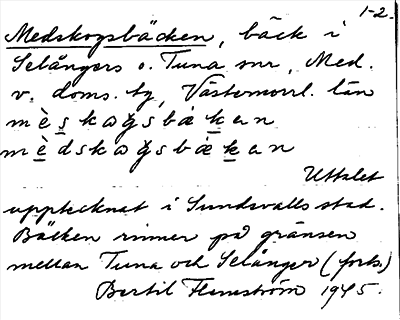 1-2.
Medskogsbäcken, bäck i
Selångers o. Tuna snr, Med.
v. doms. tg, Västernorrl. län
mè̱s̱kaǧsbäḵan
mè̱dskaǧsbäḵan
Uttalet
upptecknat i Sundsvalls stad.
Bäcken rinner på gränsen
mellan Tuna och Selånger (forts.)
Bertil Flemström 1945.